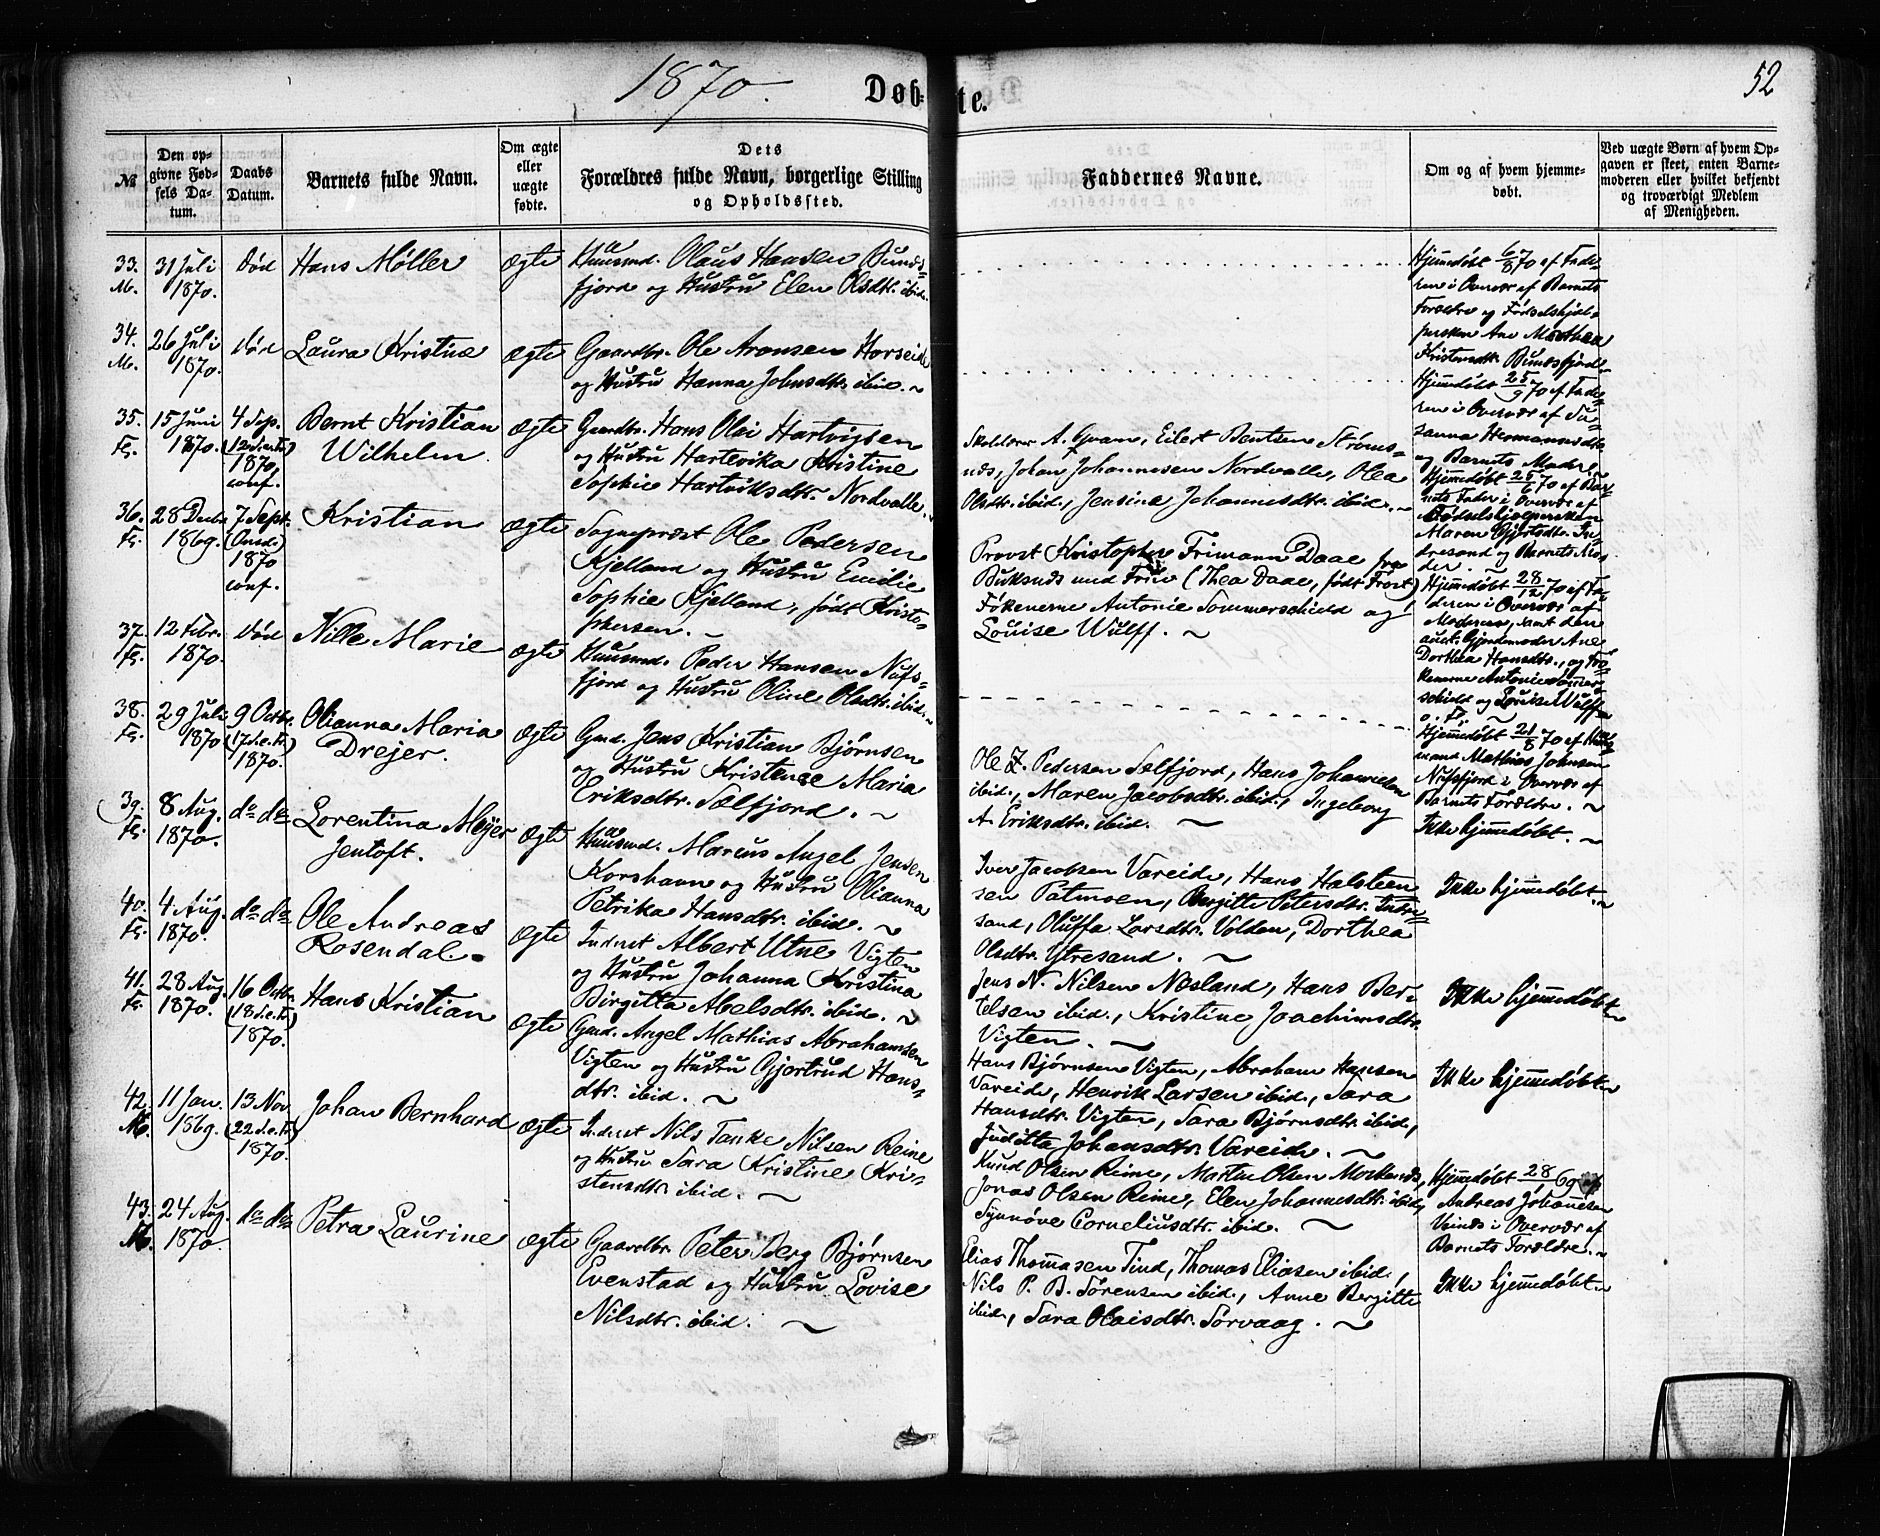 1870.
Døb-
te.
52
№
Den op-
givne Fød-
sels Da-
tum.
Daabs
Datum.
Barnets fulde Navn.
Om ægte
eller
uægte
fødte.
Dets
Forældres fulde Navn, borgerlige Stilling
og Opholdssted.
Faddernes Navne.
Om og af hvem hjemme-
døbt.
Ved uægte Børn af hvem Op-
gaven er skeet, enten Barne-
moderen eller hvilket bekjendt
og troværdigt Medlem
af Menigheden.
33.
M.
31 Juli
1870.
Død
Hans Møller
Ægte
Huusmd. Olaus Hansen Bunds-
fjord og Hustru Elen Olsdtr. ibid.
Hjemmedøbt 6/8 70 af Fade-
ren i Overvær af Barnets
Forældre og Fødselshjæl-
persken Ane Marthea
Kristensdtr. Bundsfjord.
34.
M.
26 Juli
1870.
Død
Laura Kristine
Ægte
Gaardbr. Ole Aronsen Horseid
og Hustru Hanna Johnsdtr. ibid. ~
Hjemmedøbt 25/9 70 af Fade-
ren i Overvær af Su-
sanna Hermannsdtr.
og Barnets Moder.
35.
Fl.
15 Juni
1870.
4 Sep.
(12 S.e.Tr.)
1870,
conf.
Bernt Kristian
Wilhelm
Ægte
Gaardbr. Hans Olai Hartvigsen
og Hustru Hartevika Kristine
Sophie Hartviksdtr. Nordvalle. ~
Skolelærer A. Qvam, Eilert Bentsen Strøms-
nds, Johan Johannesen Nordvalle, Olea
Olsdtr. ibid., Jensine Johannesdtr. ibid. ~
Hjemmedøbt 25/6 70 af Bar-
nets Fader i Overvær af
Fødselshjælpersken
Maren Gjertsdtr. In-
dresand og Barnets Mo-
der. ~
36.
Fl.
28 Decbr.
1869.
7 Sept.
(Onsd.)
1870
conf.
Kristian
Ægte
Sognepræst Ole Pedersen
Kjelland og Hustru Emilie
Sophie Kjelland, født Kristo-
phersen. ~
Provst Kristopher Frimann Daae fra
Buksnæs med Frue (Thea Daae, født Frost)
Frøkenerne Antonie Sommerschield og
Louise Wulff. ~
Hjemmedøbt 28/12 70 af Fa-
deren i Overvær af
Moderen, samt den
auct. Gjordemoder Ane
Dorthea Hansdtr., og Frø-
kenerne Antonie Sommer-
schield og Louise Wulff
37.
Fl.
12 Febr.
1870.
Død
Nille Marie
Ægte
Huusmd. Peder Hansen Nufs-
fjord og Hustru Oline Olsdtr. ibid. ~
Hjemmedøbt 21/8 70 af Huus-
mand Mathias Johnsen
Nufsfjord i Overvær af
Barnets Forældre. ~
38.
Fl.
29 Juli
1870
9 Octbr.
(17 S.e.Tr.)
1870.
Olianna Maria
Drejer.
Ægte
Gmd. Jens Kristian Bjørnsen
og Hustru Kristense Maria
Eriksdtr. Sælfjord. ~
Ole Z. Pedersen Selfjord, Hans Johannesen
ibid., Maren Jacobsdtr. ibid., Ingeborg
A. Eriksdtr. ibid. ~
Ikke hjemmedøbt. ~
39.
Fl.
8 Aug.
1870.
do do
Lorentina Meyer
Jentoft.
Ægte
Huusmd. Marcus Angel Jensen
Korshavn og Hustru Olianna
Petrika Hansdtr. ibid. ~
Iver Jacobsen Vareide, Hans Halsteen-
sen Patmoen, Bergitte Petersdtr. Indre-
sand, Oluffa Larsdtr. Volden, Dorthea
Olsdtr. Ytresand. ~
Ikke hjemmedøbt. ~
40.
Fl.
4 Aug.
1870.
do do
Ole Andreas
Rosendal.
Ægte
Inderst Albert Utne Vigten
og Hustru Johanna Kristina
Birgitta Abelsdtr. ibid. ~
Jens N. Nilsen Næsland, Hans Ber-
telsen ibid., Kristine Joachimsdtr.
Vigten. ~
Ikke hjemmedøbt. ~
41.
Fl.
28 Aug.
1870.
16 Octbr.
(18 S.e.Tr.)
1870.
Hans Kristian
Ægte
Gmd. Angel Mathias Abrahamsen
Vigten og Hustru Gjertrud Hans-
dtr. ibid. ~
Hans Bjørnsen Vigten, Abraham Hansen
Vareide, Henrik Larsen ibid., Sara
Hansdtr. Vigten, Sara Bjørnsdtr. ibid.,
Juditta Johansdtr. Vareide. ~
Ikke hjemmedøbt. ~
42.
M.
11 Jan.
1869.
13 Nov.
(22 S.e.Tr.)
1870.
Johan Bernhard
Ægte
Inderst Nils Tanke Nilsen Reine
og Hustru Sara Kristine Kri-
stensdtr. ibid. ~
Knud Olsen Reine, Martin Olsen Morkends,
Jonas Olsen Reine, Elen Johannesdtr. ibid.,
Synnøve Corneliusdtr. ibid. ~
Hjemmedøbt 28/1 69 af
Andreas Johannesen
i Overvær af
Barnets Forældre. ~
43.
M.
24 Aug.
1870.
do do
Petra Laurine
Ægte
Gaardbr. Peter Berg Bjørnsen
Evenstad og Hustru Lovise
Nilsdtr. ibid. ~
Elias Thomasen Tind, Thomas Eliasen ibid.,
Nils P. B. Sørensen ibid., Anne Bergitte
ibid., Sara Olaisdtr. Sørvaag. ~
Ikke hjemmedøbt. ~